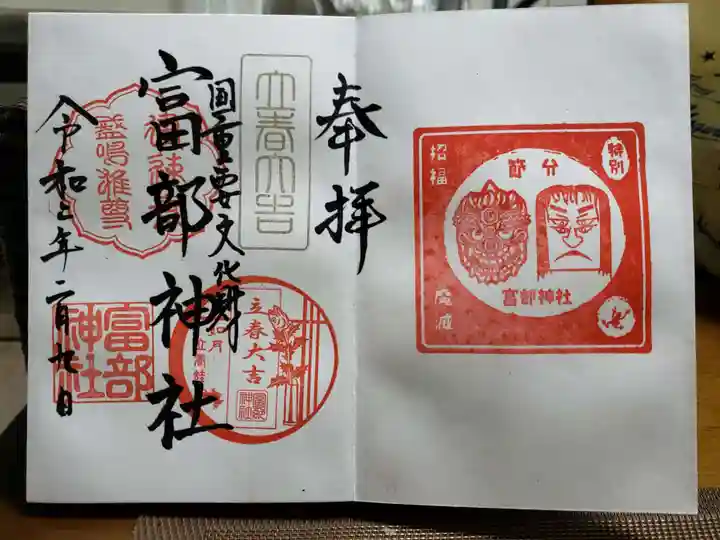 奉拝
立春大吉
国重要文化財
富部神社
令和三年二月九日
富部
神社
立春大吉
富部
神社
特別
節分
招福
富部神社